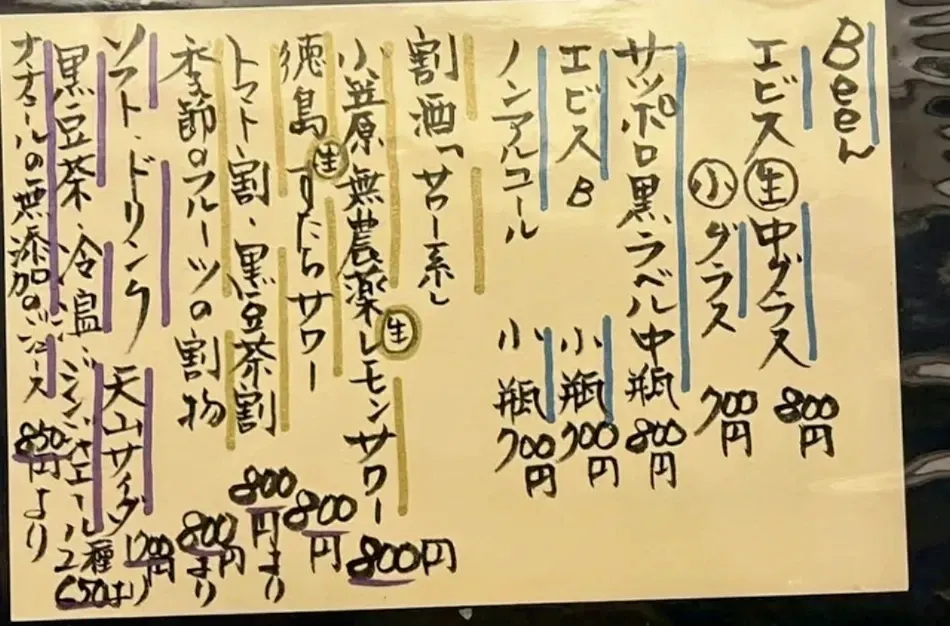 Beer
エビス 生 中グラス 800円
小 グラス 700円
サッポロ黒ラベル中瓶 800円
エビスB 小瓶 700円
ノンアルコール 小瓶 700円
割酒「サワー系」
小笠原無農薬レモンサワー 生 800円
徳島 生 すだちサワー 800円
トマト割・黒豆茶割 800円より
季節のフルーツの割物 800円より
ソフト・ドリンク 天山サイダー 円
黒豆茶・冷温・ジンジャエール2種 650より
の無添加のジュース 850円より